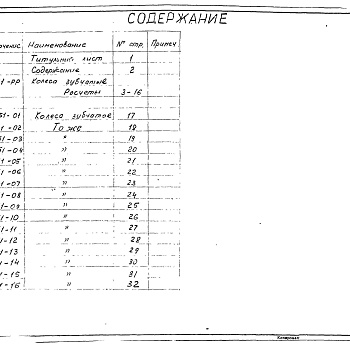 СОДЕРЖАНИЕ
Наименование № стр. Примеч
Титульный лист 1
Содержание 2
1-РР Колеса зубчатые
Расчеты 3-16
51-01 Колесо зубчатое 17
1-02 То же 18
51-03 " 19
51-04 " 20
1-05 " 21
1-06 " 22
1-07 " 23
1-08 " 24
1-09 " 25
1-10 " 26
1-11 " 27
1-12 " 28
1-13 " 29
1-14 " 30
1-15 " 31
1-16 " 32
Копировал